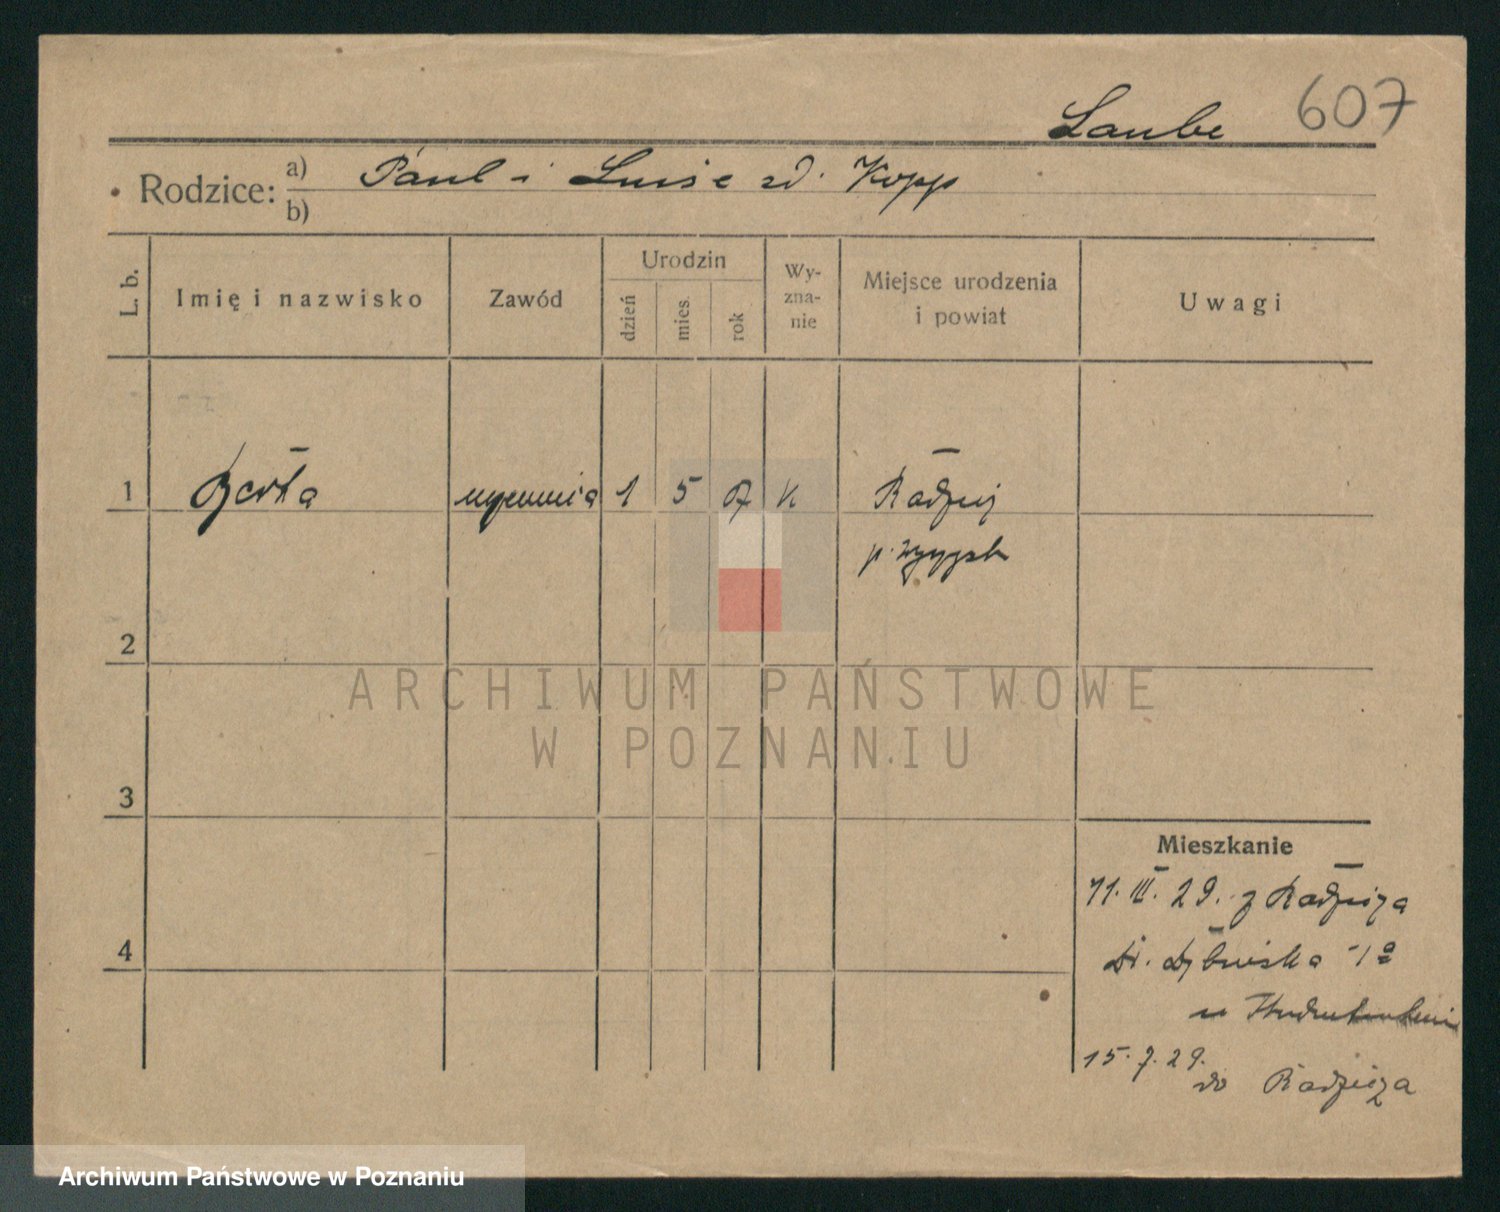 Laube 607
Rodzice: a) Paul i Luise zd. Kopp
b)
L. b.
Imię i nazwisko
Zawód
Urodzin
dzień
mies.
rok
Wy-
zna-
nie
Miejsce urodzenia
i powiat
Uwagi
1 Berta uczennica 1 5 07 K Radzicz
p. wyrzysk
2
3
4
Mieszkanie
11. III. 29. z Radzicza
do Radzicza
15. 7. 29.
ARCHIWUM PAŃSTWOWE
W POZNANIU
Archiwum Państwowe w Poznaniu